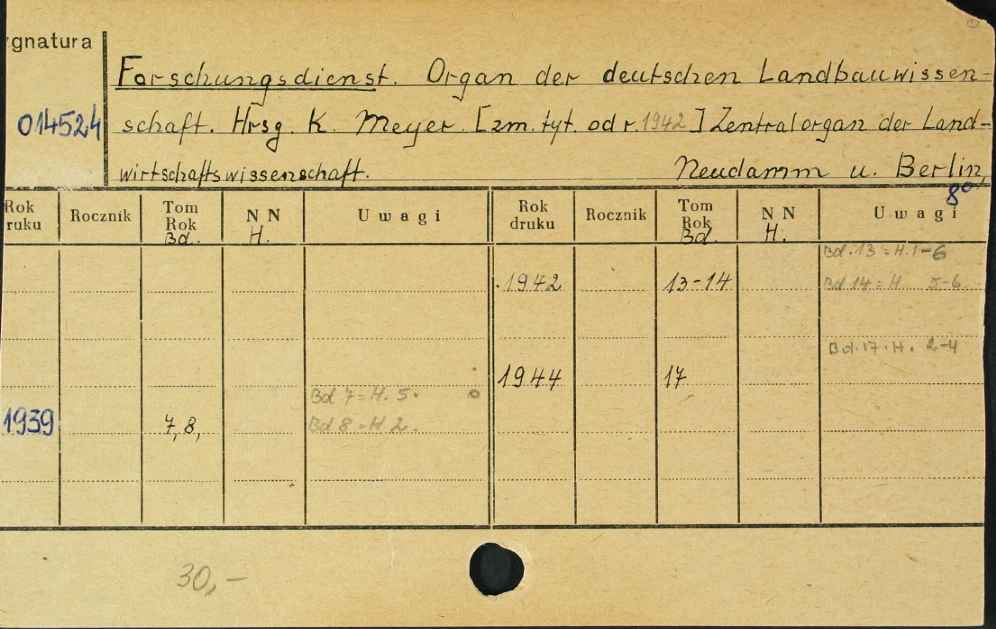 ygnatura
Forschungsdienst. Organ der deutschen Landbauwissen-
014524
schaft. Hrsg. K. Meyer. [zm. tyt. od r. 1942] Zentralorgan der Land-
wirtschaftswissenschaft. Neudamm u. Berlin,
8°
Rok ruku Rocznik Tom Rok Bd. NN H. Uwagi Rok druku Rocznik Tom Rok Bd. NN H. Uwagi
Bd. 13 = H. 1-6
1942 13-14 Bd 14 = H 5-6
Bd. 17. H. 2-4
1944 17
Bd 7 = H. 5.
1939 7, 8, Bd 8 = H 2.
30,-